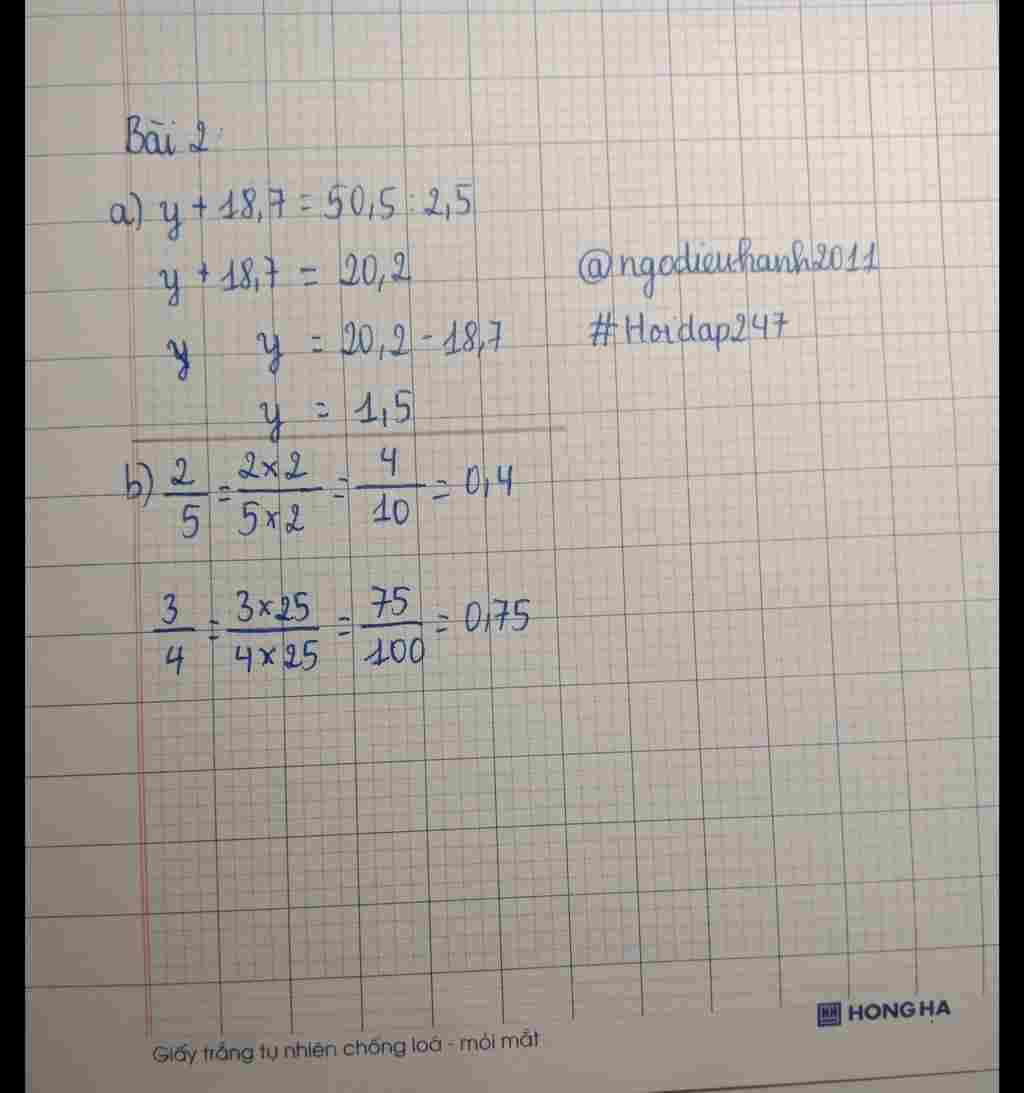 Bài 2:
a) y + 18,7 = 50,5 : 2,5
y + 18,7 = 20,2
@ngodieuhanh2011
y y = 20,2 - 18,7
#Hoidap247
y = 1,5
b) 2/5 = 2×2/5×2 = 4/10 = 0,4
3/4 = 3×25/4×25 = 75/100 = 0,75
HONG HA
Giấy trắng tự nhiên chống loá - mỏi mắt